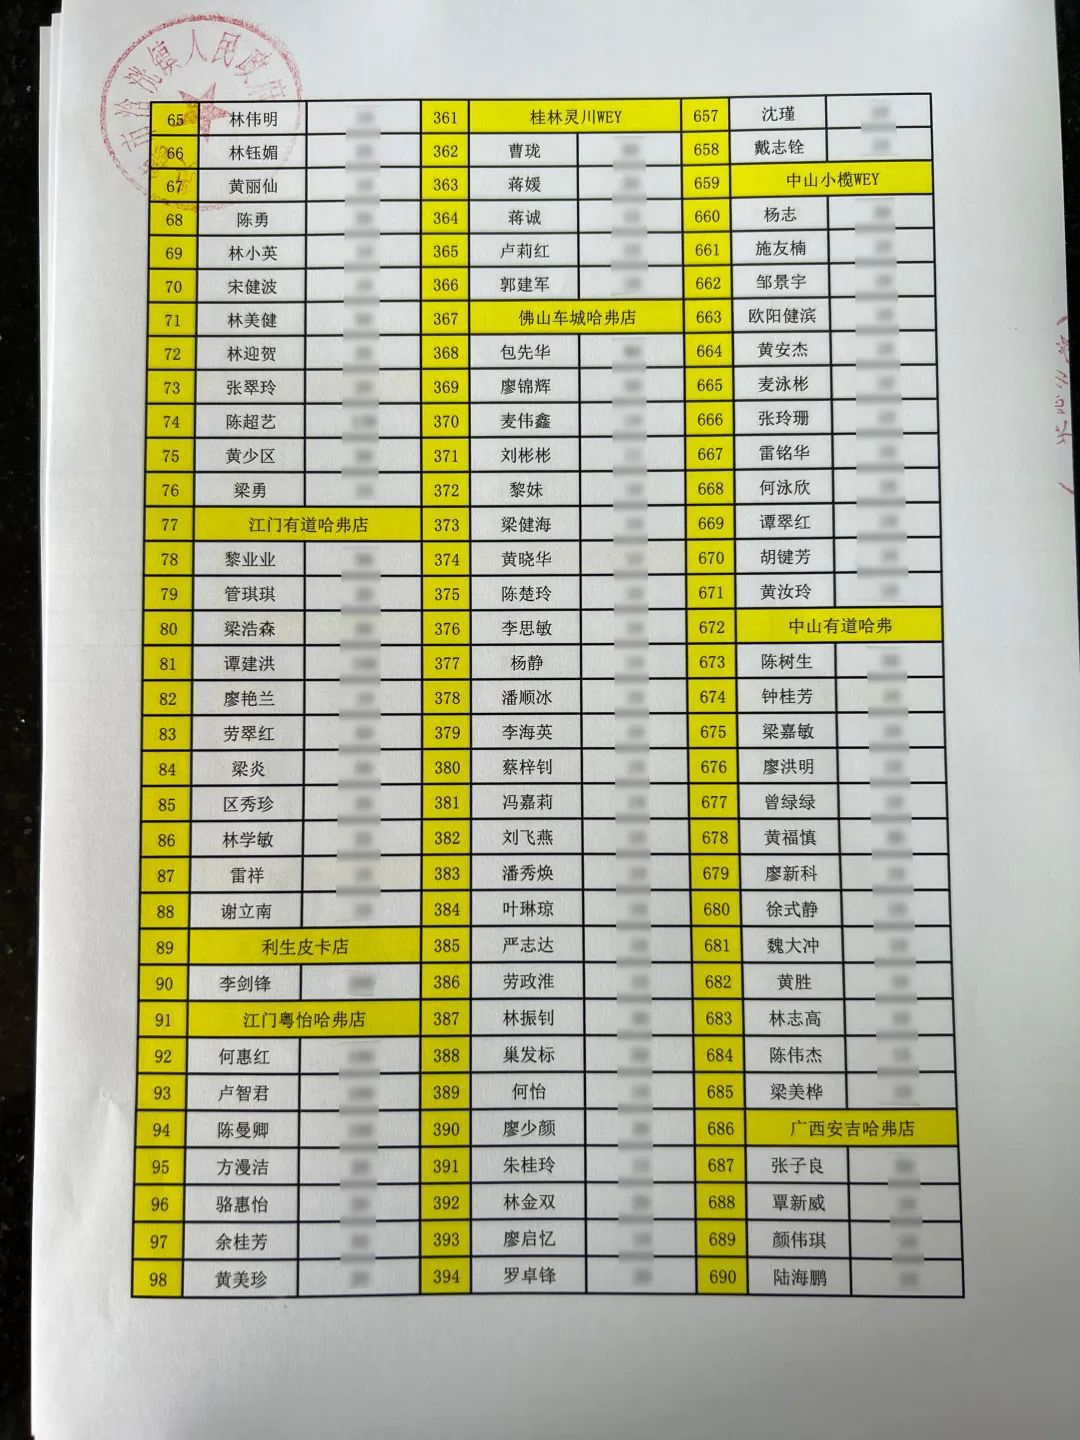 洸镇人民政府
65 林伟明 361 桂林灵川WEY 657 沈瑾
66 林钰媚 362 曹珑 658 戴志铨
67 黄丽仙 363 蒋媛 659 中山小榄WEY
68 陈勇 364 蒋诚 660 杨志
69 林小英 365 卢莉红 661 施友楠
70 宋健波 366 郭建军 662 邹景宇
71 林美健 367 佛山车城哈弗店 663 欧阳健滨
72 林迎贺 368 包先华 664 黄安杰
73 张翠玲 369 廖锦辉 665 麦泳彬
74 陈超艺 370 麦伟鑫 666 张玲珊
75 黄少区 371 刘彬彬 667 雷铭华
76 梁勇 372 黎妹 668 何泳欣
77 江门有道哈弗店 373 梁健海 669 谭翠红
78 黎业业 374 黄晓华 670 胡键芳
79 管琪琪 375 陈楚玲 671 黄汝玲
80 梁浩森 376 李思敏 672 中山有道哈弗
81 谭建洪 377 杨静 673 陈树生
82 廖艳兰 378 潘顺冰 674 钟桂芳
83 劳翠红 379 李海英 675 梁嘉敏
84 梁炎 380 蔡梓钊 676 廖洪明
85 区秀珍 381 冯嘉莉 677 曾绿绿
86 林学敏 382 刘飞燕 678 黄福慎
87 雷祥 383 潘秀焕 679 廖新科
88 谢立南 384 叶琳琼 680 徐式静
89 利生皮卡店 385 严志达 681 魏大冲
90 李剑锋 386 劳政淮 682 黄胜
91 江门粤怡哈弗店 387 林振钊 683 林志高
92 何惠红 388 巢发标 684 陈伟杰
93 卢智君 389 何怡 685 梁美桦
94 陈曼卿 390 廖少颜 686 广西安吉哈弗店
95 方漫洁 391 朱桂玲 687 张子良
96 骆惠怡 392 林金双 688 覃新威
97 余桂芳 393 廖启忆 689 颜伟琪
98 黄美珍 394 罗卓锋 690 陆海鹏